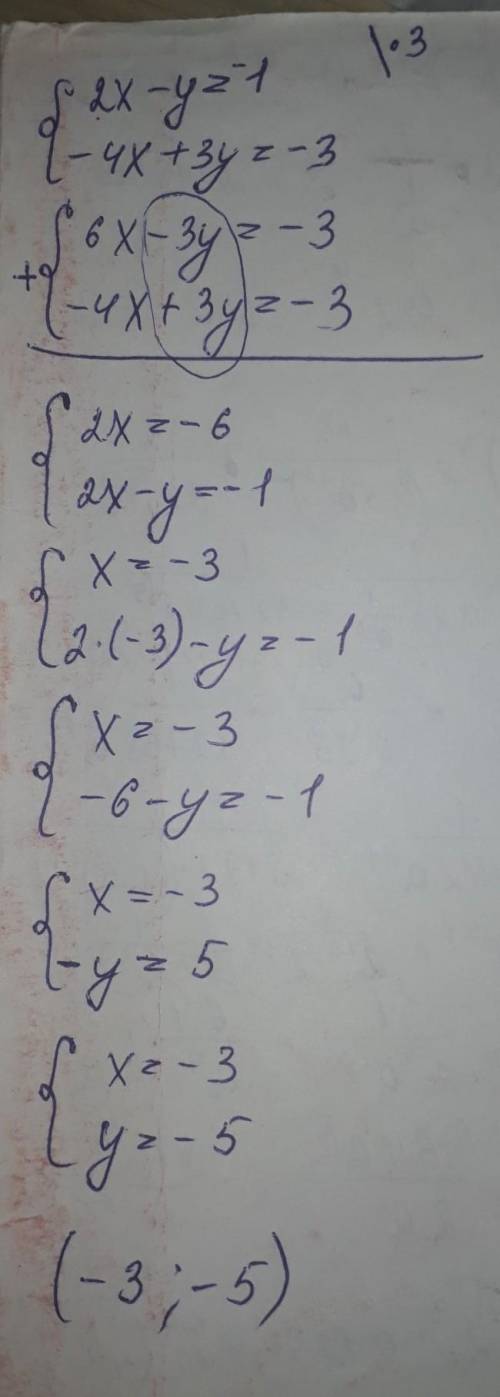 2x - y = -1 \·3
-4x + 3y = -3
6x - 3y = -3
+
-4x + 3y = -3
2x = -6
2x - y = -1
x = -3
2·(-3) - y = -1
x = -3
-6 - y = -1
x = -3
-y = 5
x = -3
y = -5
(-3 ; -5)